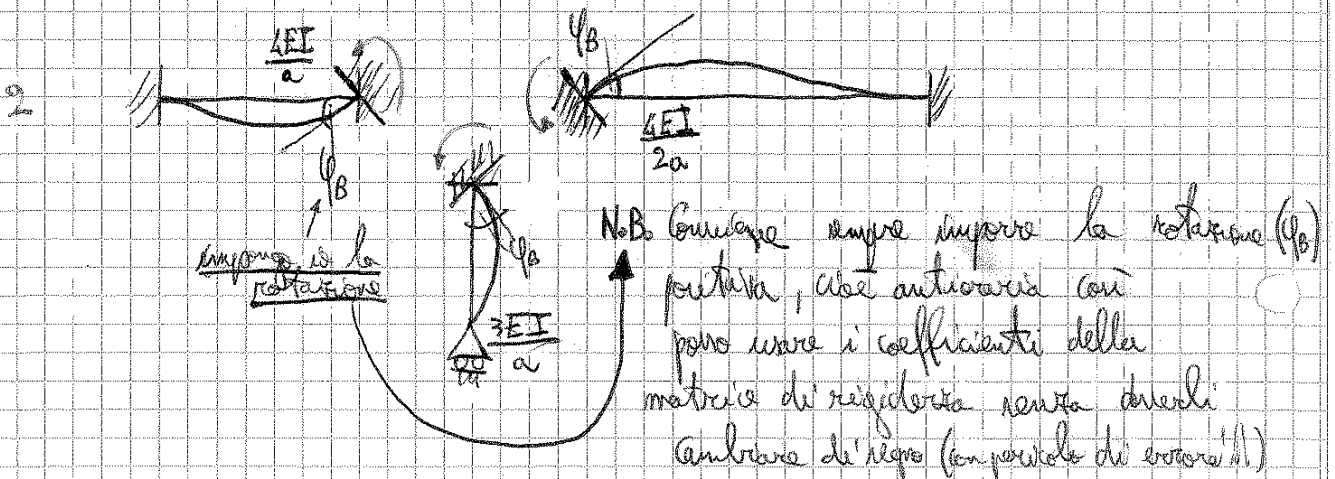 2
4EI/a
φB
φB
4EI/2a
φB
3EI/a
impongo io la
rotazione
N.B. Conviene sempre imporre la rotazione (φB)
positiva, cioè antioraria così
posso usare i coefficienti della
matrice di rigidezza senza doverli
cambiare di segno (con pericolo di errore!!!)